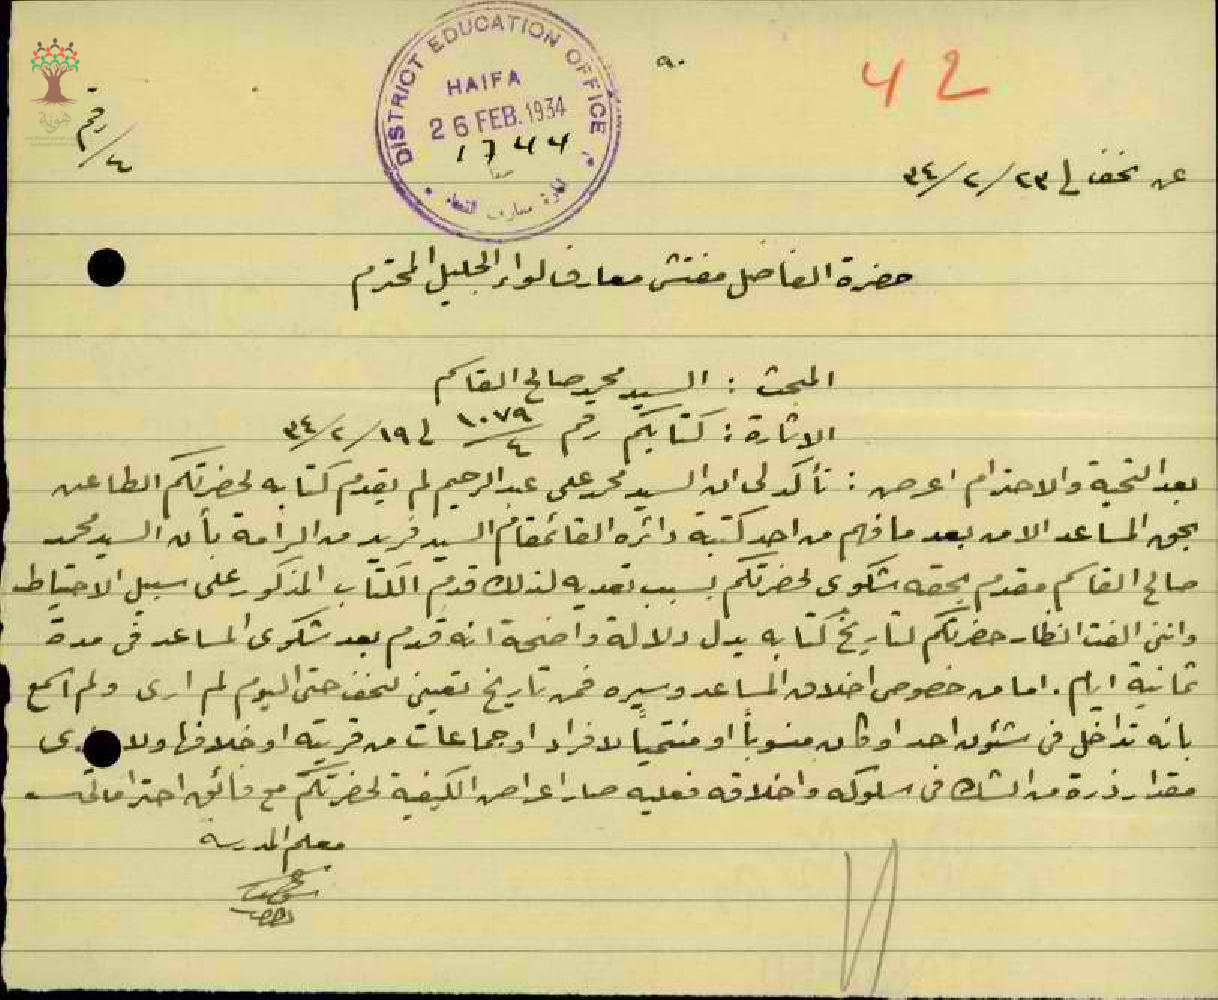 DISTRICT EDUCATION OFFICE
HAIFA
26 FEB. 1934
1744
ادارة معارف القضاء
٩٠
42
هوية
رقم
٤
عن نحف في ٢٣/٢/٣٤
حضرة الفاضل مفتش معارف لواء الجليل المحترم
المبحث : السيد محمد صالح القاسم
الاشارة : كتابكم رقم ١٠٧٩/٤ في ١٩/٢/٣٤
بعد التحية والاحترام اعرض : تأكد لي ان السيد محمد علي عبد الرحيم لم يقدم كتابه لحضرتكم الطاعن
بحق المساعد الا من بعد ما فهم من احد كتبة دائرة القائمقام السيد فريد من الرامة بأن السيد محمد
صالح القاسم مقدم بحقه شكوى لحضرتكم بسبب تعديه لذلك قدم الكتاب المذكور على سبيل الاحتياط
وانني الفت انظار حضرتكم لتاريخ كتابه يدل دلالة واضحة انه قدم بعد شكوى المساعد في مدة
ثمانية ايام . اما من خصوص اخلاق المساعد وسيره فمن تاريخ تعييني لنحف حتى اليوم لم ارى ولم اسمع
بانه تداخل في شئون احد او كان منسوباً او منتمياً لافراد او جماعات من قريته او خلافها ولا
مقدار ذرة من الشك في سلوكه واخلاقه فعليه صار اعراض الكيفية لحضرتكم مع فائق احتراماتي
معلم المدرسة